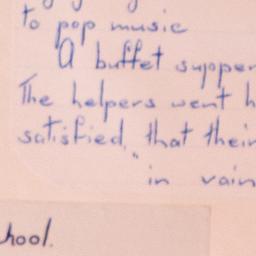 to pop music
A buffet supper
The helpers went h
satisfied, that their
in vain
hool.